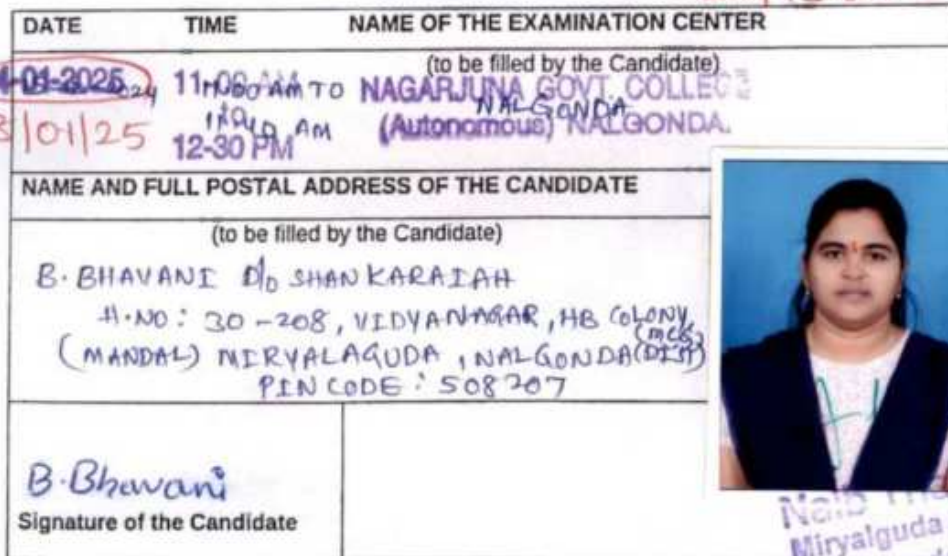 DATE TIME NAME OF THE EXAMINATION CENTER
(to be filled by the Candidate)
-01-2025 11-00 AM TO NAGARJUNA GOVT. COLLEGE
NALGONDA
/01/25 AM (Autonomous) NALGONDA.
12-30 PM
NAME AND FULL POSTAL ADDRESS OF THE CANDIDATE
(to be filled by the Candidate)
B. BHAVANI D/o SHANKARAIAH
H.NO: 30-208, VIDYANAGAR, HB COLONY
(MANDAL) MIRYALAGUDA, NALGONDA (DIST)
PIN CODE: 508207
B. Bhavani
Signature of the Candidate
Naib
Miryalguda